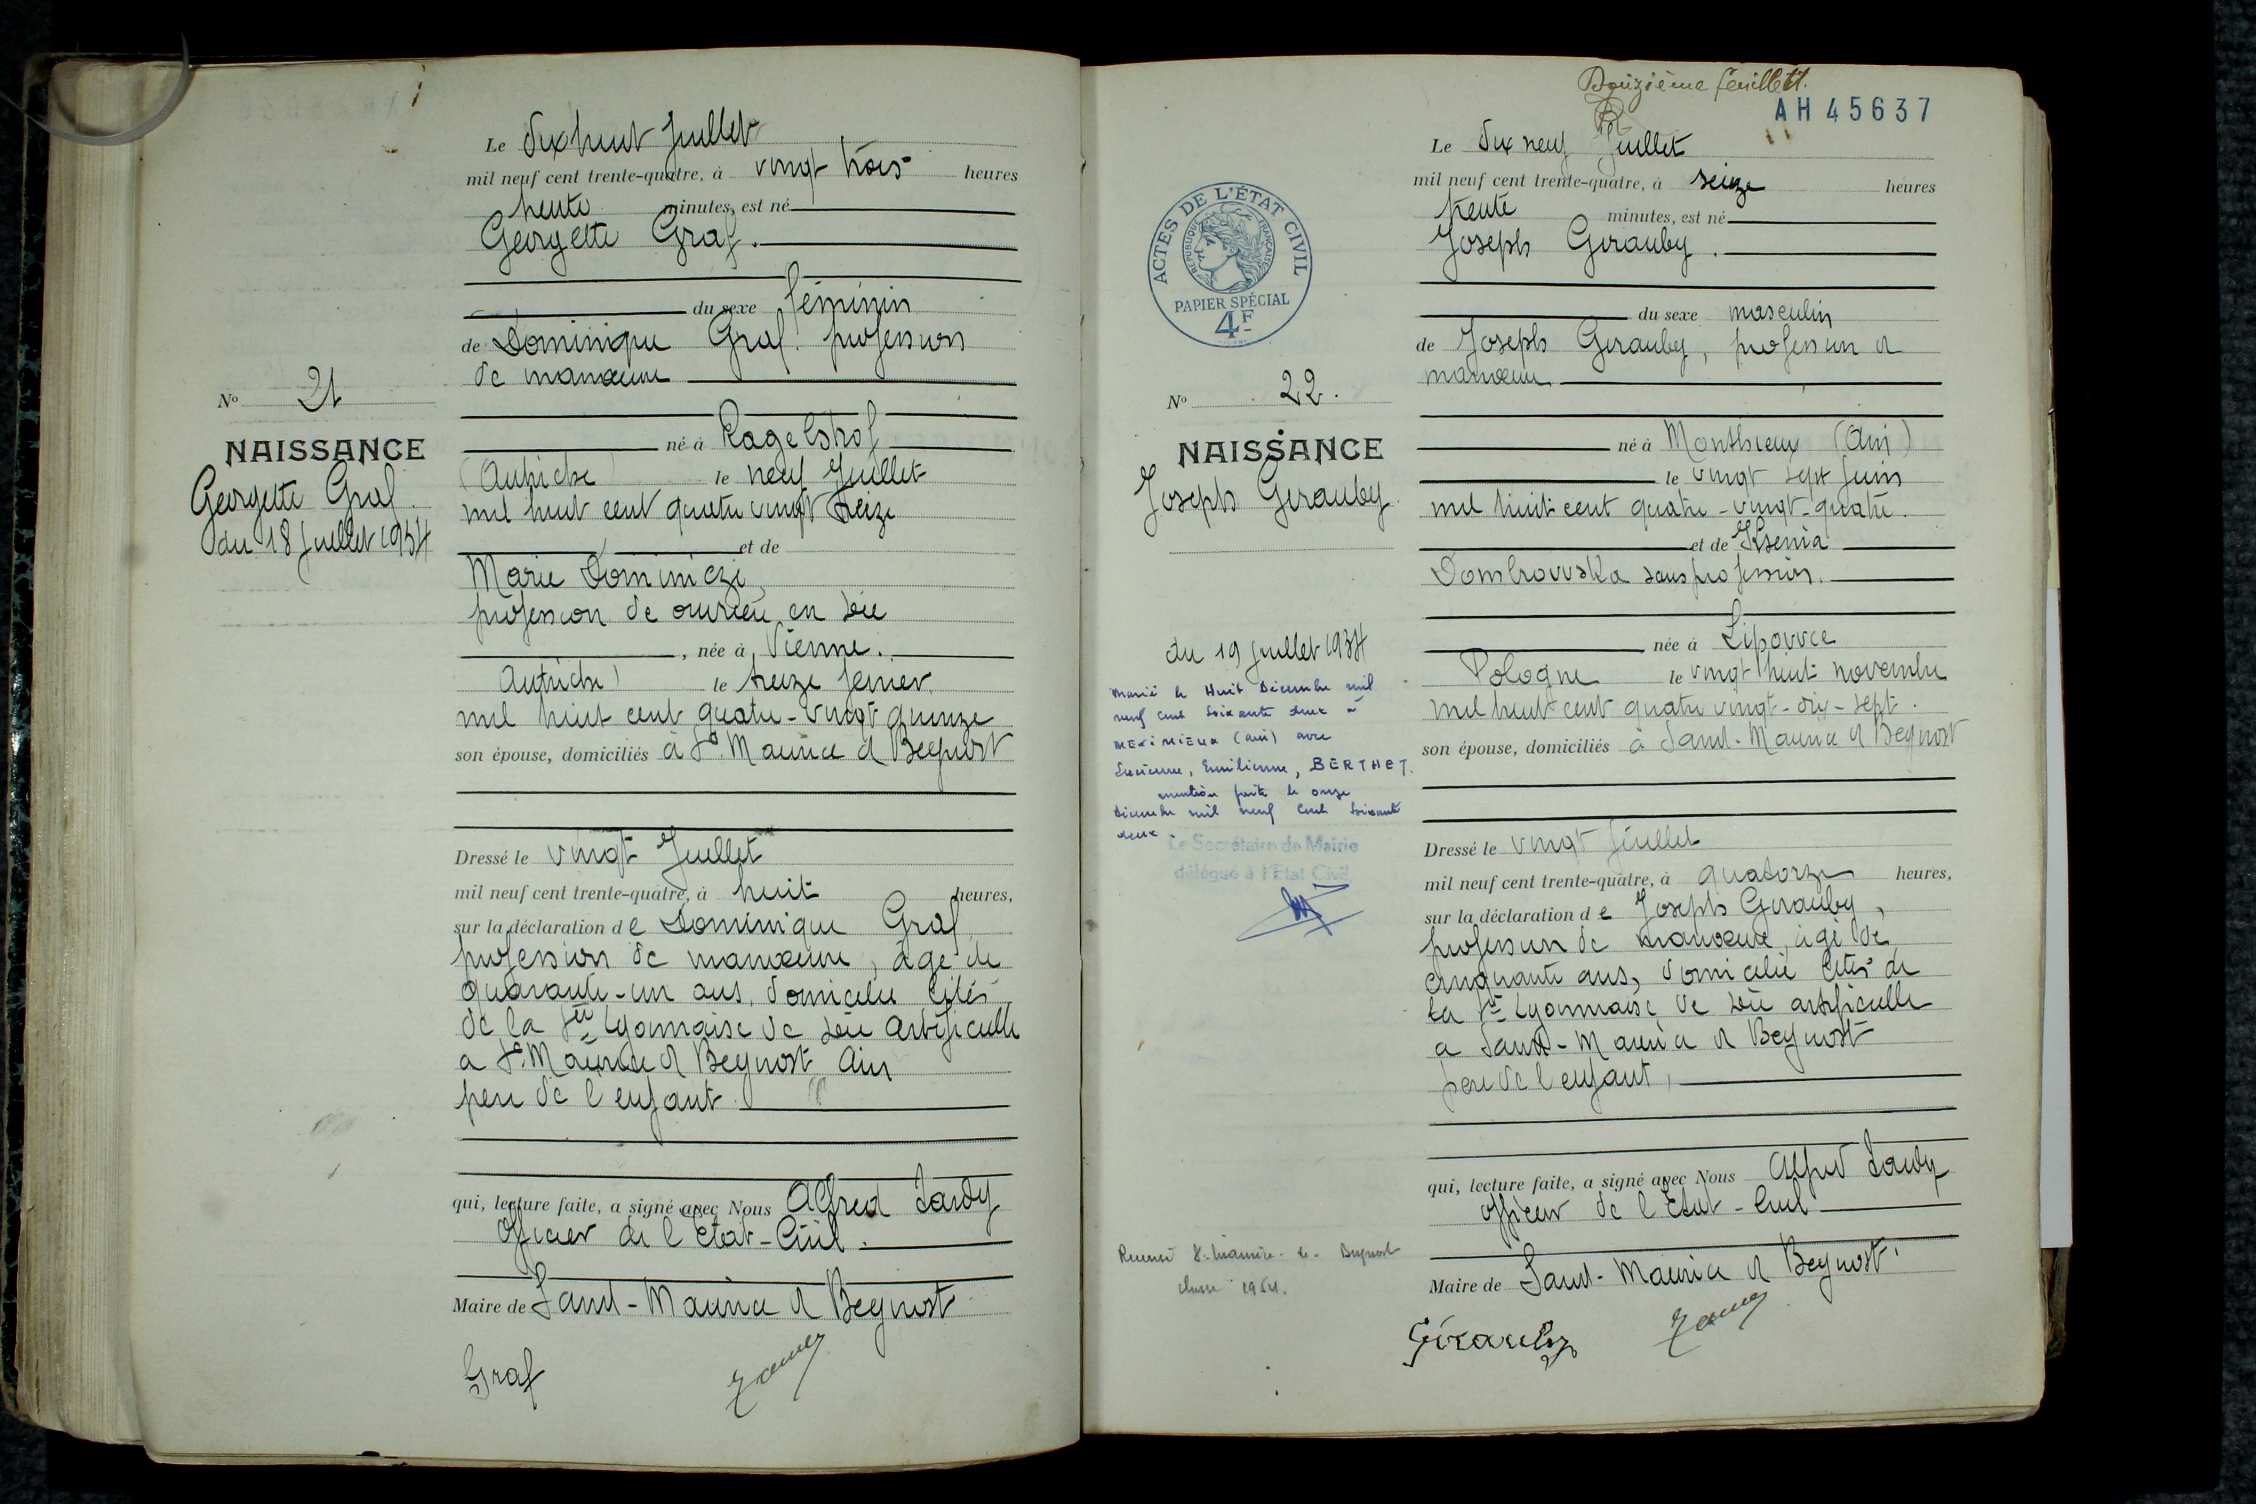 Le dix huit Juillet
mil neuf cent trente-quatre, à vingt trois heures
trente minutes, est né
Georgette Graf.
du sexe féminin
de Dominique Graf profession
de manœuvre
né à Ragelsdorf
(Autriche) le neuf Juillet
mil huit cent quatre vingt treize
et de
Marie Dominiczi
profession de ouvrière en soie
, née à Vienne.
Autriche) le treize février
mil huit cent quatre-vingt quinze
son épouse, domiciliés à St. Maurice d Beynost
Dressé le vingt Juillet
mil neuf cent trente-quatre, à huit heures,
sur la déclaration de Dominique Graf
profession de manœuvre, âgé de
quarante-un ans, domicilié Cités
de la Sté Lyonnaise de soie artificielle
a St. Maurice d Beynost Ain
père de l'enfant
qui, lecture faite, a signé avec Nous Alfred
Officier de l'Etat-Civil.
Maire de Saint-Maurice d Beynost
Graf
No 21
NAISSANCE
Georgette Graf
du 18 Juillet 1934
Douzième feuillet.
AH 45637
Le dix neuf Juillet
mil neuf cent trente-quatre, à seize heures
trente minutes, est né
Joseph Girauby.
du sexe masculin
de Joseph Girauby, profession d
manœuvre
né à Monthieux (Ain)
le vingt sept Juin
mil huit cent quatre-vingt-quatre.
et de Ksenia
Dombrovvska sans profession.
née à Lipovvce
Pologne le vingt huit novembre
mil huit cent quatre vingt-dix-sept.
son épouse, domiciliés à Saint-Maurice d Beynost
Dressé le vingt Juillet
mil neuf cent trente-quatre, à quatorze heures,
sur la déclaration de Joseph Girauby,
profession de manœuvre, âgé de
cinquante ans, domicilié Cités de
la Sté Lyonnaise de soie artificielle
a Saint-Maurice d Beynost
père de l'enfant,
qui, lecture faite, a signé avec Nous Alfred
officier de l'Etat-Civil
Maire de Saint-Maurice d Beynost.
Girauby
ACTES DE L'ÉTAT CIVIL
RÉPUBLIQUE FRANÇAISE
PAPIER SPÉCIAL
4F
No 22.
NAISSANCE
Joseph Girauby.
du 19 Juillet 1934
Marié le Huit Décembre mil
neuf cent soixante deux à
MEXIMIEUX (Ain) avec
Lucienne, Emilienne, BERTHET.
mention faite le onze
Décembre mil neuf cent soixante
deux.
Le Secrétaire de Mairie
délégué à l'Etat Civil
Recensé St-Maurice-de-Beynost
classe 1954.